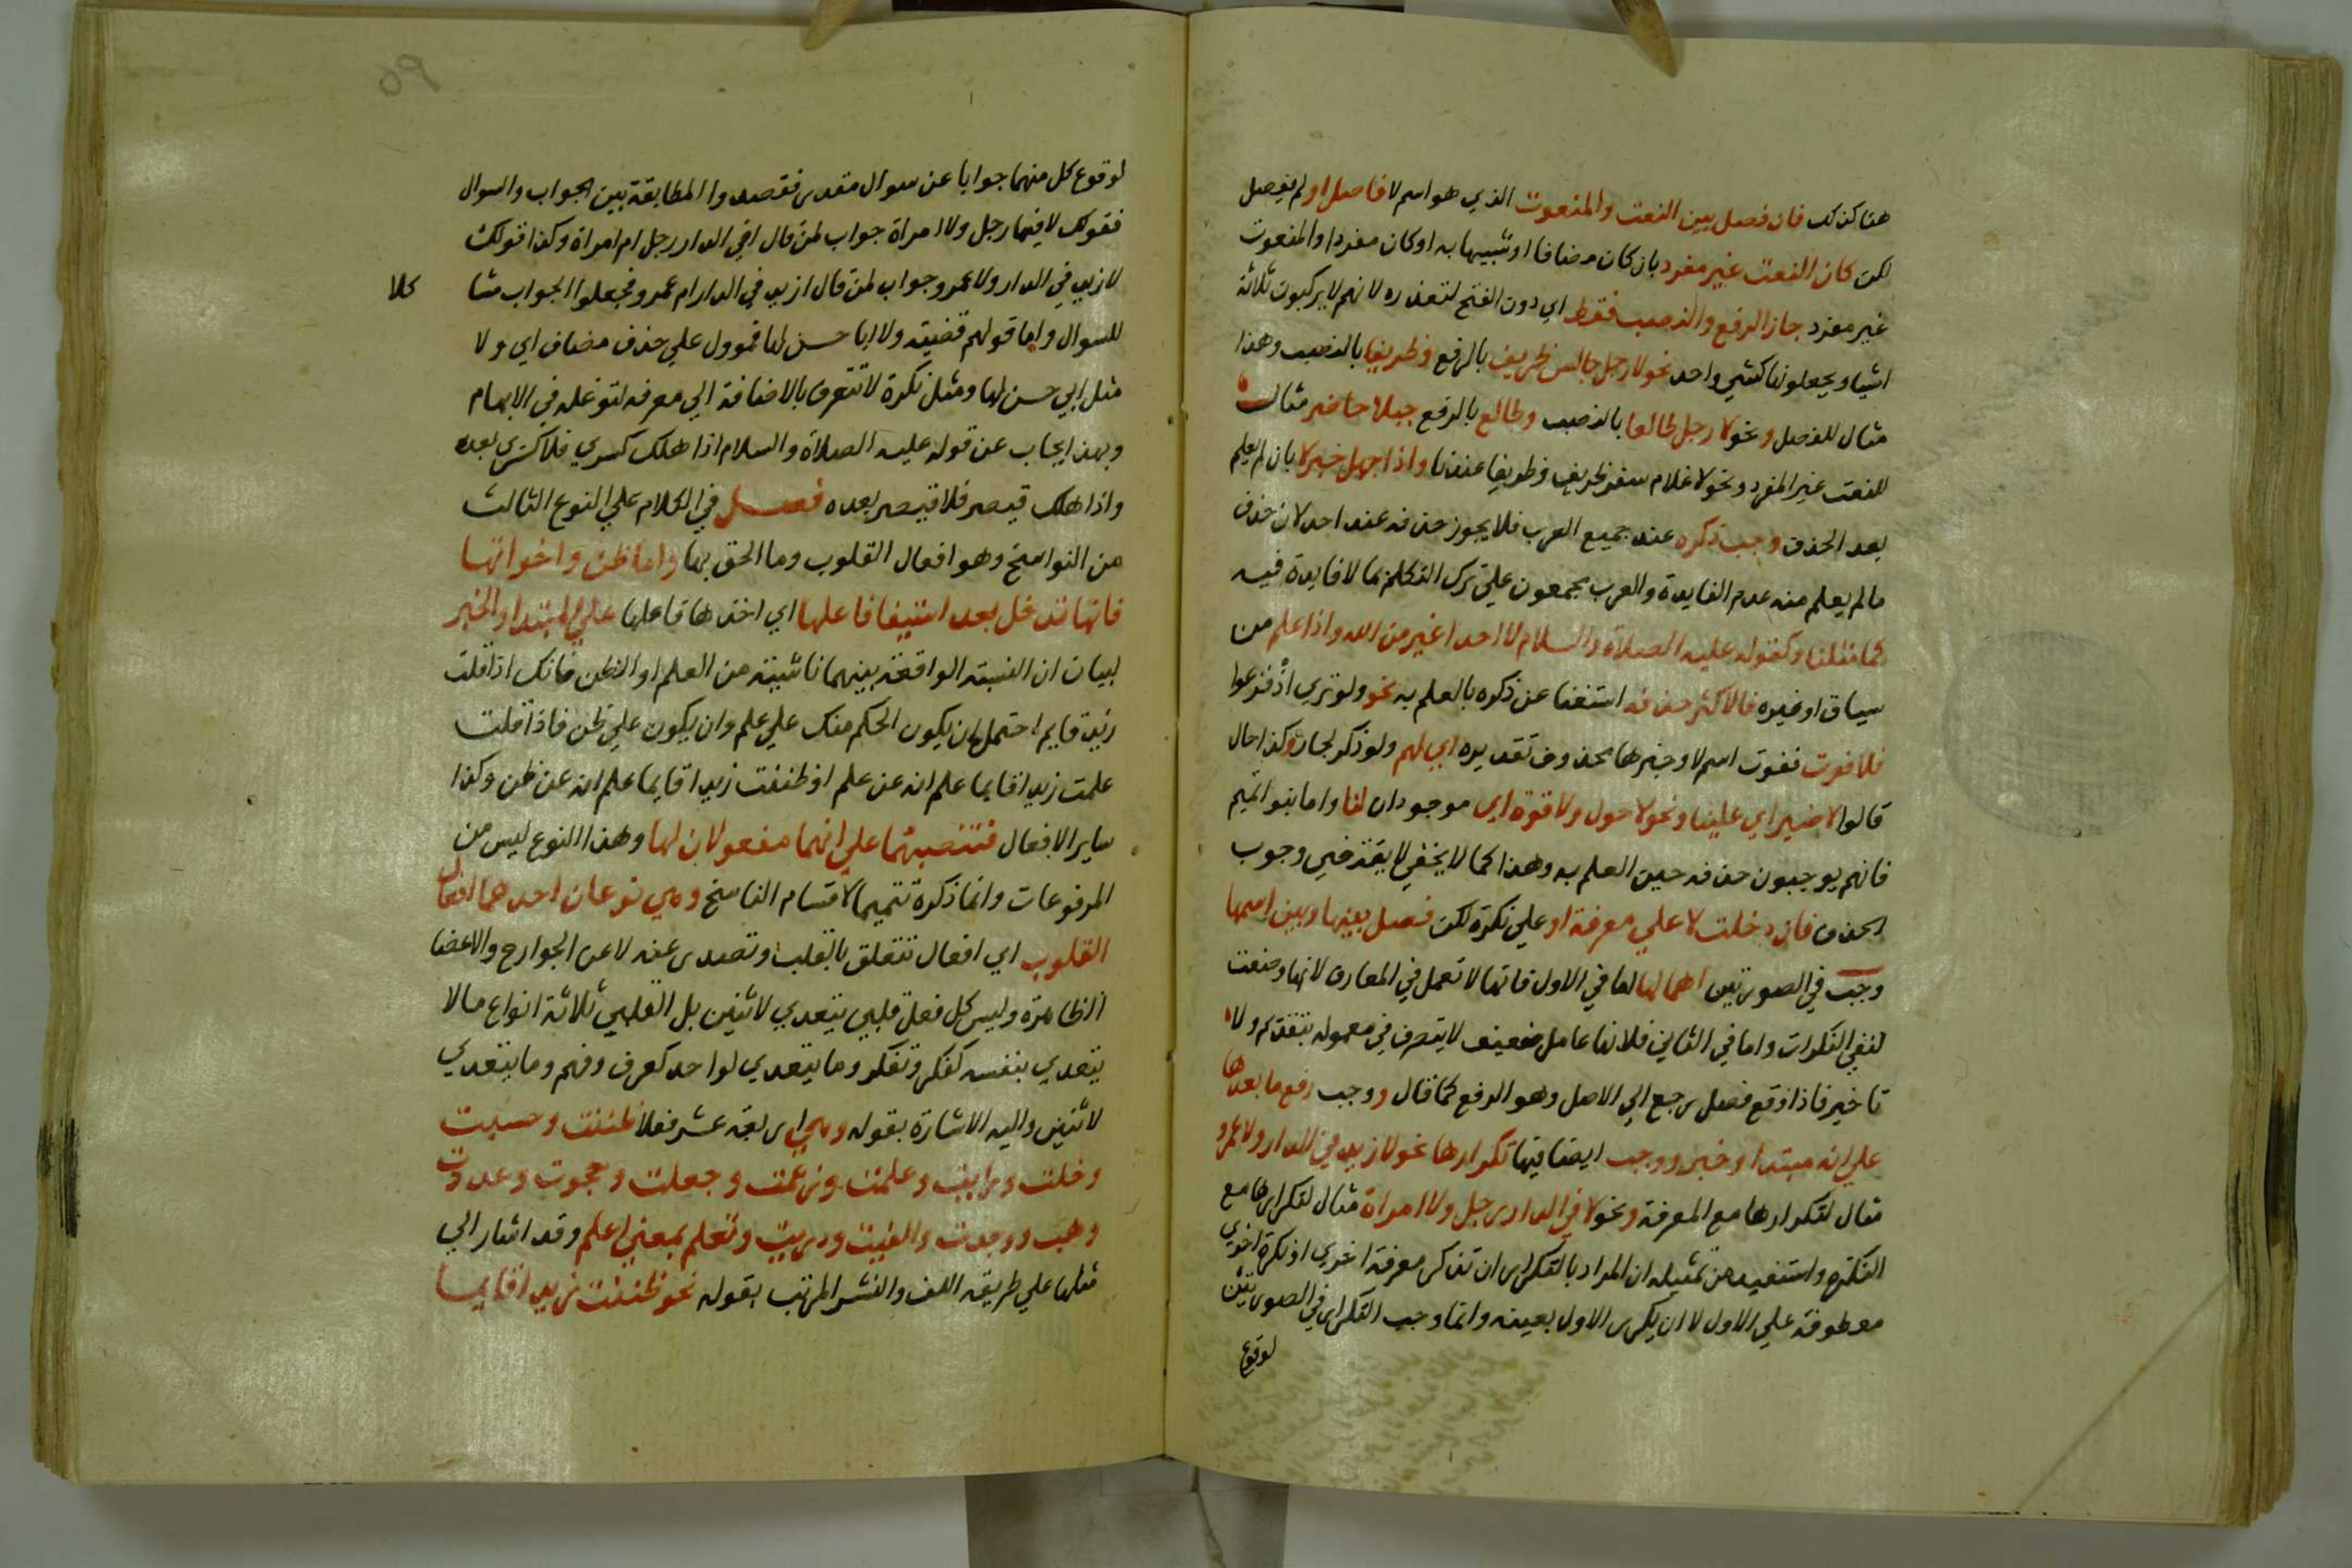 هنا كذلك فان فصل بين النعت والمنعوت الذي هو اسم لا فاصل او لم يفصل
لكن كان النعت غير مفرد بان كان مضافا او شبيها به او كان مفردا والمنعوت
غير مفرد جاز الرفع والنصب فقط اي دون الفتح لتعذره لانهم لا يركبون ثلاثة
اشيا ويجعلونها كشي واحد نحو لا رجل جالس ظريف بالرفع وظريفا بالنصب وهذا
مثال للفصل ونحو لا رجل طالعا بالنصب وطالع بالرفع جبلا حاضر مثال
للنعت غير المفرد ونحو لا غلام سفر ظريف وظريفا عندنا واذا جهل خبر لا بان لم يعلم
بعد الحذف وجب ذكره عند جميع العرب فلا يجوز حذفه عند احد لان حذف
ما لم يعلم منه عدم الفايدة والعرب يجمعون علي ترك التكلم بما لا فايدة فيه
كما مثلنا وكقوله عليه الصلاة والسلام لا احد اغير من الله واذا علم من
سياق او غيره فالاكثر حذفه استغنا عن ذكره بالعلم به نحو ولو تري اذ فزعوا
فلا فوت ففوت اسم لا وخبرها محذوف تقديره اي لهم ولو ذكر لجاز وكذا حال
قالوا لا ضير اي علينا ونحو لا حول ولا قوة اي موجودان لنا واما بنو اتميم
فانهم يوجبون حذفه حين العلم به وهذا كما لا يخفي لا يقتضي وجوب
الحذف فان دخلت لا علي معرفة او علي نكرة لكن فصل بينها وبين اسمها
وجب في الصورتين اهمالها اما في الاول فانها لا تعمل في المعارف لانها وضعت
لنفي النكرات واما في الثاني فلانها عامل ضعيف لا يتصرف في معموله بتقديم ولا
تاخير فاذا وقع فصل رجع الي الاصل وهو الرفع كما قال ووجب رفع ما بعدها
علي انه مبتدا وخبر ووجب ايضا فيها تكرارها نحو لا زيد في الدار ولا عمرو
مثال لتكرارها مع المعرفة ونحو لا في الدار رجل ولا امراة مثال لتكرارها مع
النكرة واستفيد من تمثيله ان المراد بالتكرار ان تذكر معرفة اخري او نكرة اخري
معطوفة علي الاول لا ان يكرر الاول بعينه وانما وجب التكرار في الصورتين
لوقوع
لوقوع كل منهما جوابا عن سوال مقدر فقصدوا المطابقة بين الجواب والسوال
فقولك لا فيها رجل ولا امراة جواب لمن قال افي الدار رجل ام امراة وكذا قولك
لا زيد في الدار ولا عمرو جواب لمن قال ازيد في الدار ام عمرو فجعلوا الجواب مشا كلا
للسوال واما قولهم قضية ولا ابا حسن لها فموول علي حذف مضاف اي ولا
مثل ابي حسن لها ومثل نكرة لا تتعرف بالاضافة الي معرفه لتوغله في الابهام
وبهذا يجاب عن قوله عليه الصلاة والسلام اذا هلك كسري فلا كسري بعده
واذا هلك قيصر فلا قيصر بعده فصل في الكلام علي النوع الثالث
من النواسخ وهو افعال القلوب وما الحق بها واما ظن واخواتها
فانها تدخل بعد استيفا فاعلها اي اخذها فاعلها علي المبتدا والخبر
لبيان ان النسبة الواقعة بينهما ناشية من العلم او الظن فانك اذا قلت
زيد قايم احتمل ان يكون الحكم منك علي علم وان يكون علي ظن فاذا قلت
علمت زيدا قايما علم انه عن علم او ظننت زيدا قايما علم انه عن ظن وكذا
ساير الافعال فتنصبهما علي انهما مفعولان لها وهذا النوع ليس من
المرفوعات وانما ذكره تتميما لاقسام الناسخ وهي نوعان احدهما افعال
القلوب اي افعال تتعلق بالقلب وتصدر عنه لا عن الجوارح والاعضا
الظاهرة وليس كل فعل قلبي يتعدي لاثنين بل القلبي ثلاثة انواع ما لا
يتعدي بنفسه كفكر وتفكر وما يتعدي لواحد كعرف وفهم وما يتعدي
لاثنين واليه الاشارة بقوله وهي اربعة عشر فعلا ظننت وحسبت
وخلت ورايت وعلمت وزعمت وجعلت وحجوت وعددت
وهب ووجدت والفيت ودريت وتعلم بمعني اعلم وقد اشار الي
مثلها علي طريقة اللف والنشر المرتب بقوله نحو ظننت زيدا قايما